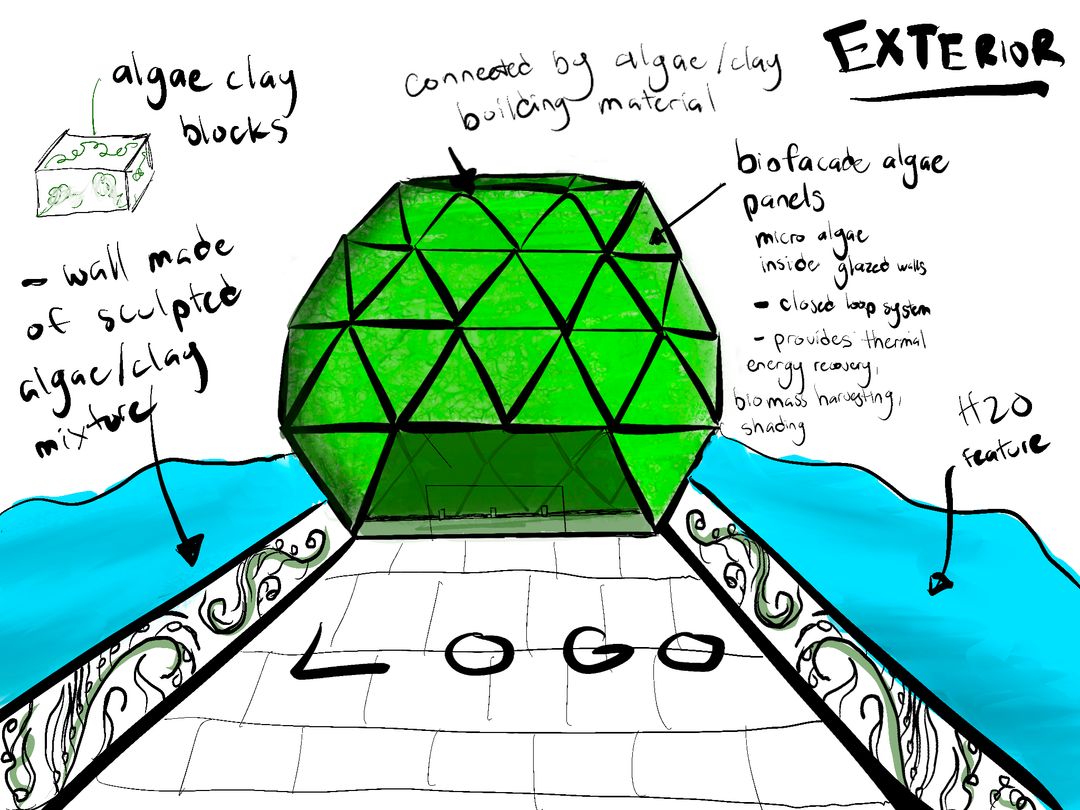 EXTERIOR
algae clay
blocks
connected by algae/clay
building material
biofacade algae
panels
micro algae
inside glazed walls
- closed loop system
- provides thermal
energy recovery,
biomass harvesting,
shading
- wall made
of sculpted
algae/clay
mixture
H20
feature
LOGO